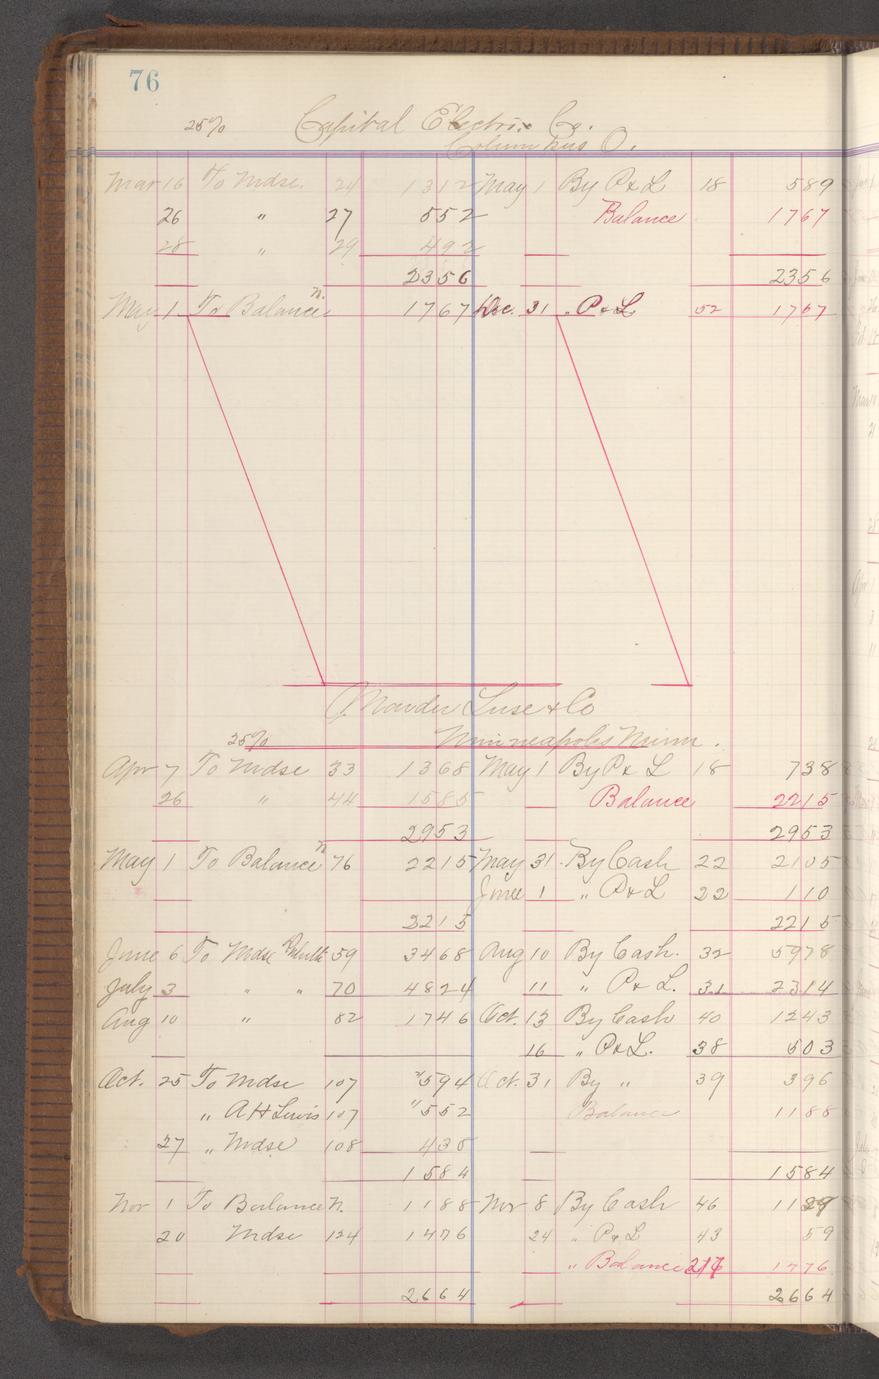 76
25% Capital Electric Co.
Columbus O.
Mar 16 To Mdse. 24 1312 May 1 By P & L 18 589
26 " 27 552 Balance 1767
28 " 29 492
2356 2356
May 1 To Balance 1767 Dec. 31 " P & L 52 1767
Luse & Co
25% Minneapolis Minn.
Apr 7 To Mdse 33 1368 May 1 By P & L 18 738
26 " 44 1585 Balance 2215
2953 2953
May 1 To Balance 76 2215 May 31 By Cash 22 2105
June 1 " P & L 22 110
2215 2215
June 6 To Mdse 59 3468 Aug 10 By Cash. 32 5978
July 3 " " 70 4824 11 " P & L. 31 2314
Aug 10 " 82 1746 Oct. 13 By Cash 40 1243
16 " P & L. 38 503
Oct. 25 To Mdse 107 594 Oct. 31 By " 39 396
" A H Lewis 107 552 Balance 1188
27 " Mdse 108 438
1584 1584
Nov 1 To Balance 1188 Nov 8 By Cash 46 1129
20 Mdse 124 1476 24 " P & L 43 59
" Balance 1476
2664 2664